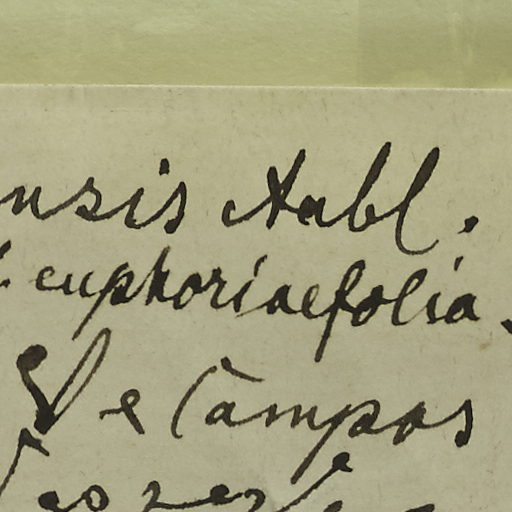 nsis Aabl.
euphoriaefolia.
De Campos